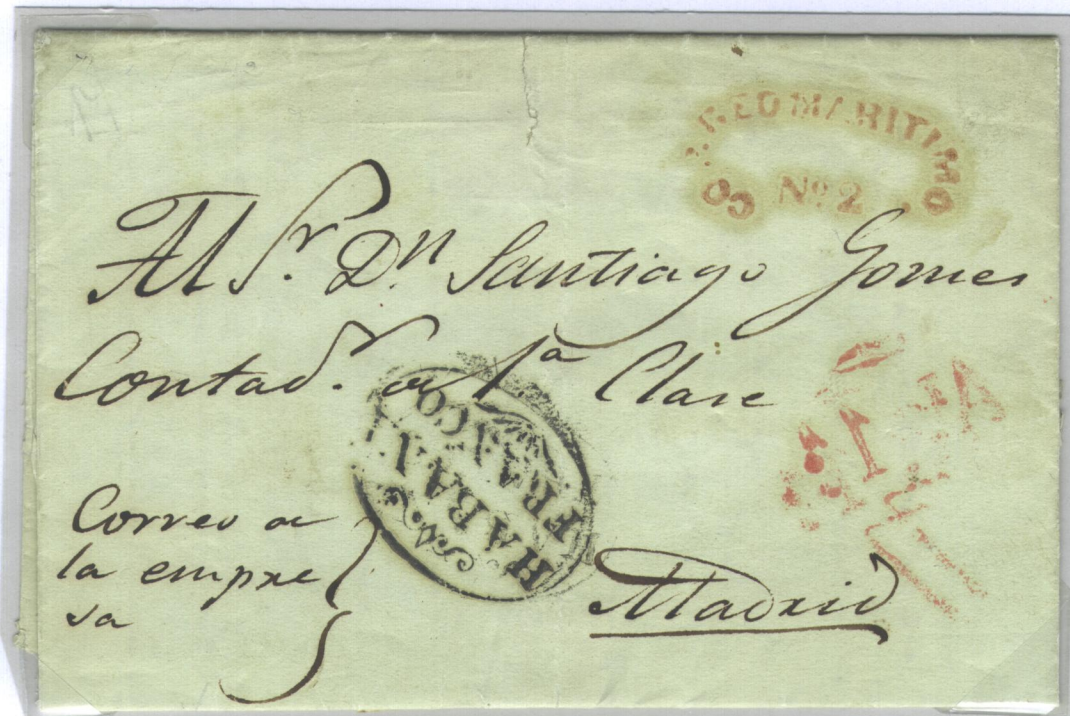 CORREO MARITIMO
Nº 2
Al Sr. Dn. Santiago Gomes
Contadr. de 1ª Clase
HABANA
FRANCO
Correo de
la empre
sa
Madrid